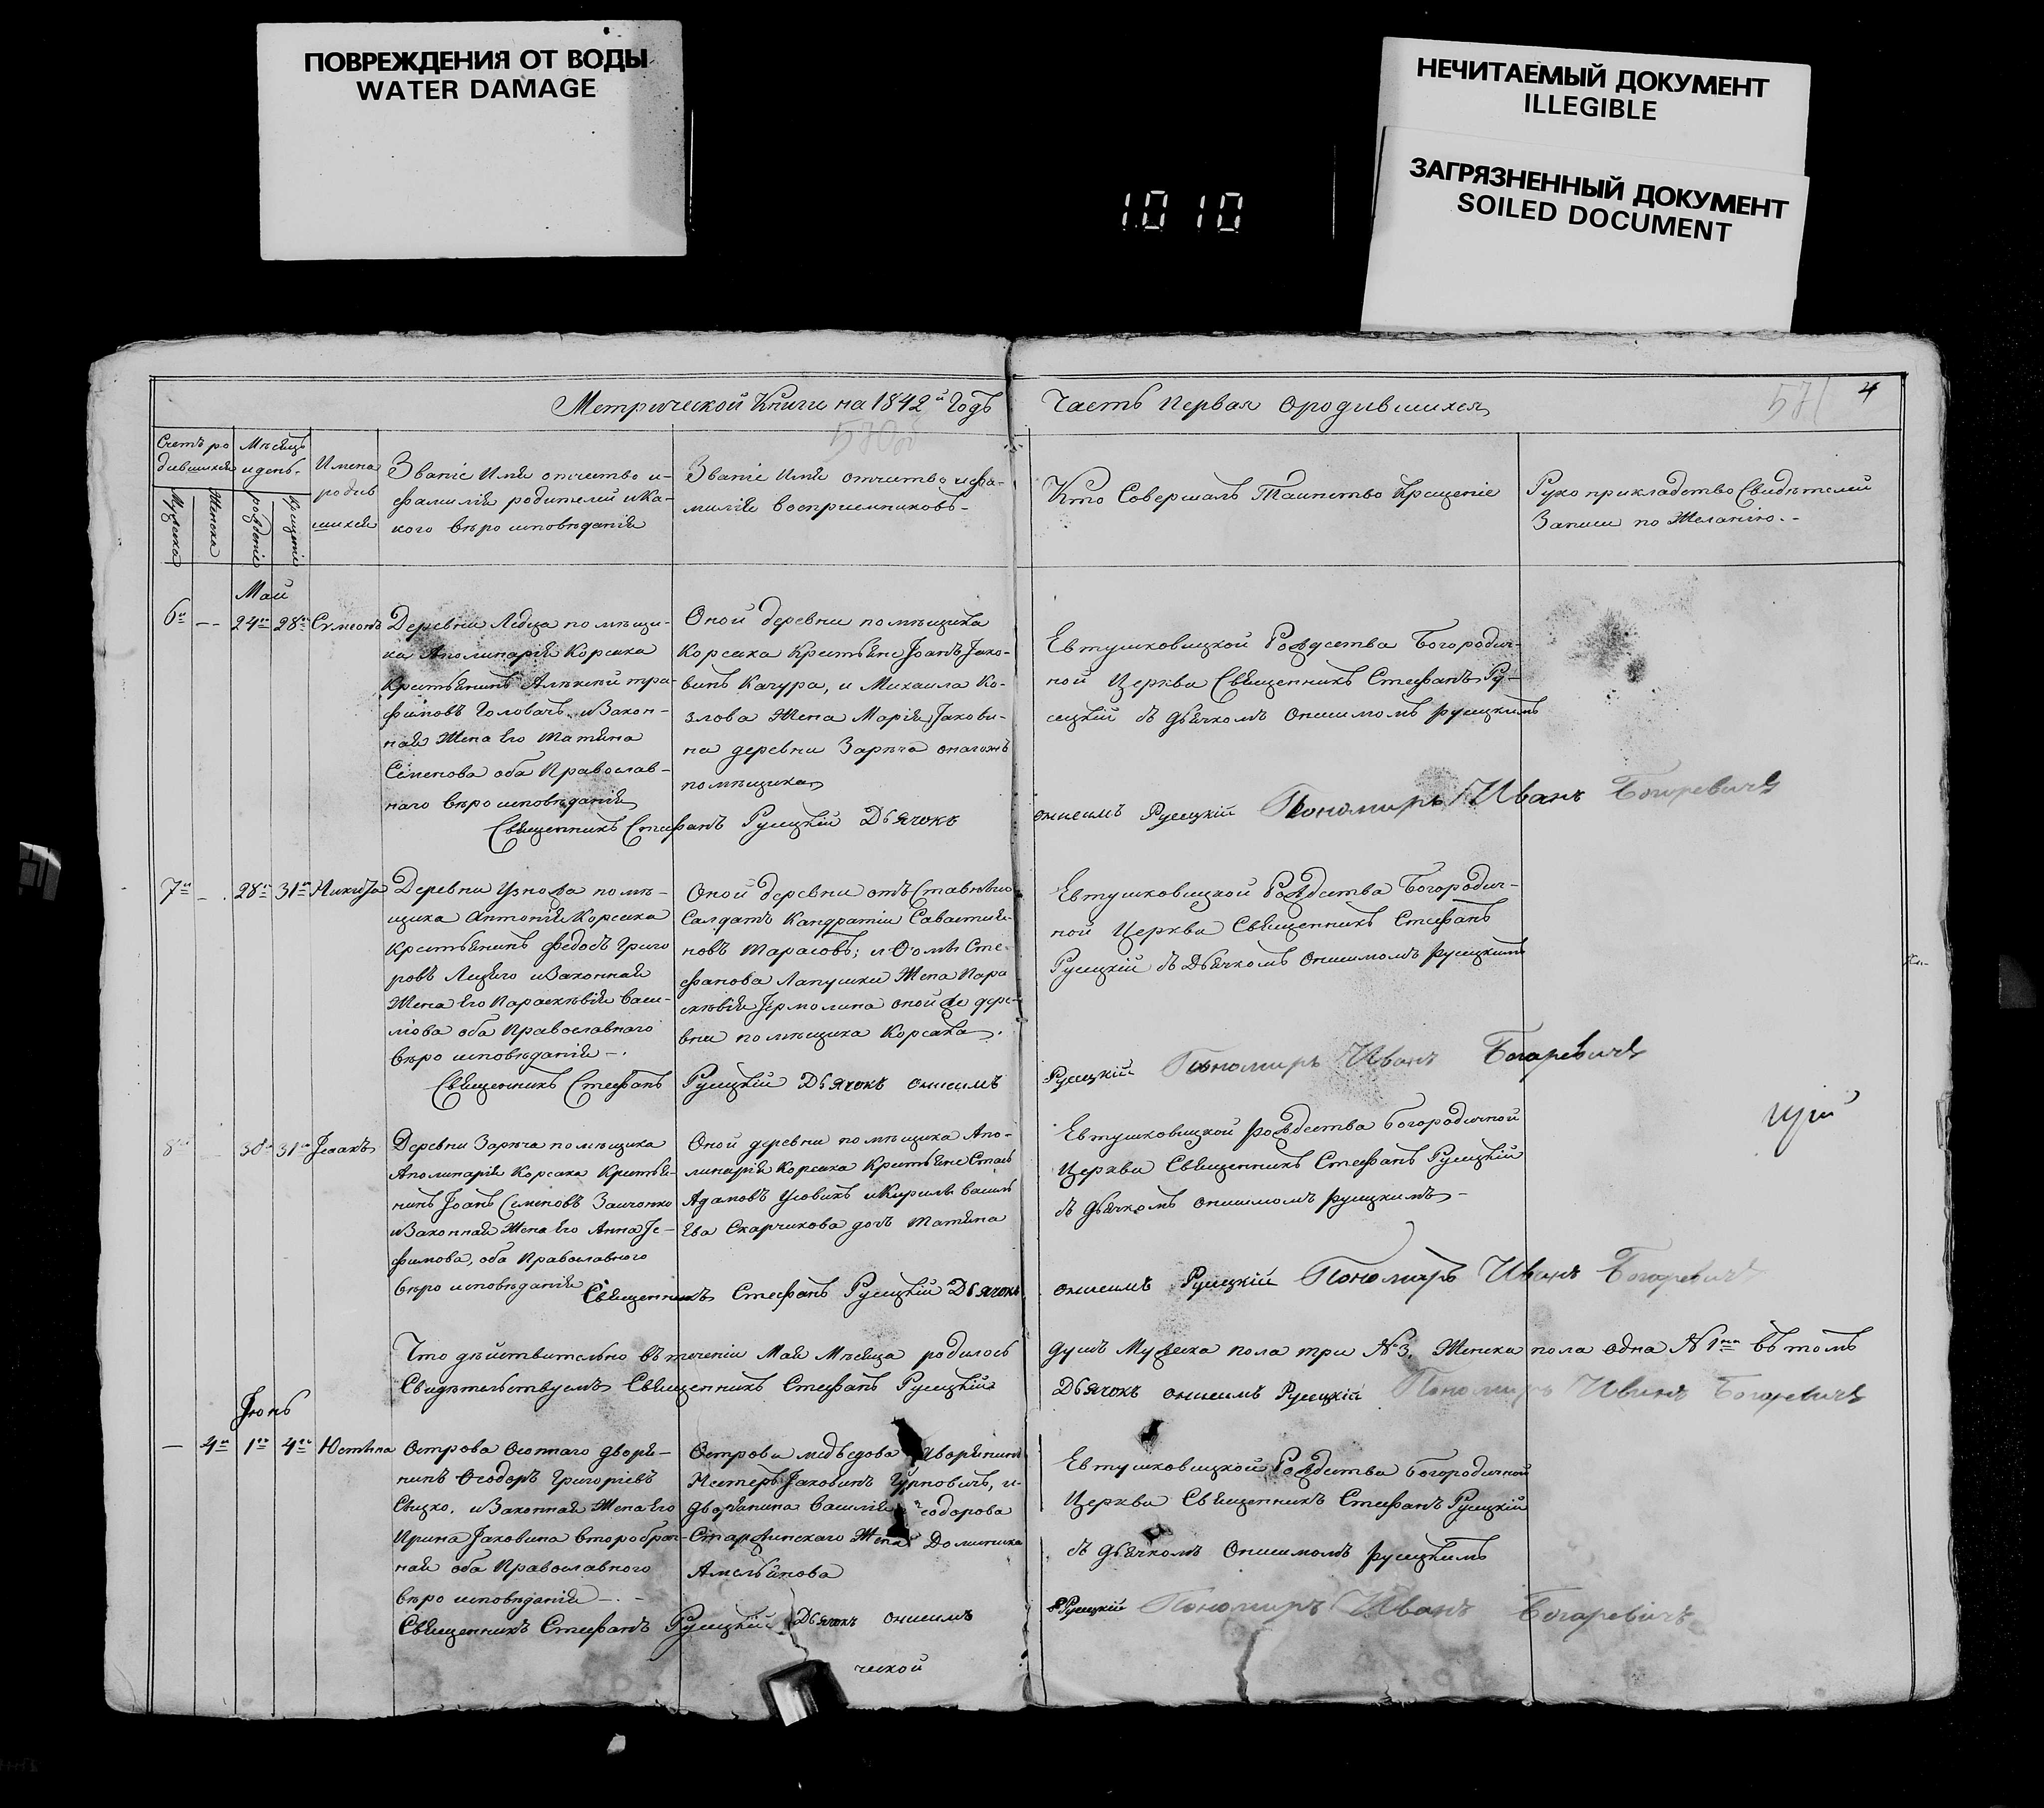 ПОВРЕЖДЕНИЯ ОТ ВОДЫ
WATER DAMAGE
НЕЧИТАЕМЫЙ ДОКУМЕНТ
ILLEGIBLE
ЗАГРЯЗНЕННЫЙ ДОКУМЕНТ
SOILED DOCUMENT
1010
Метрической Книги на 1842й Годъ
Часть Первая ородившихся
571
4
570
Счетъ ро
дившихся
Мужеска
Женска
Мѣсяцъ
и день.
рожденіе
Крещеніе
Имена
родив
шихся
Званіе Имя отчество и
фамилія родителей и ка-
кого вѣро исповѣданія
Званіе Имя отчество и фа-
милія воспріемниковъ
Кто Совершалъ Таинство Крещеніе
Руко прикладство Свидѣтелей
Записи по Желанію.
Май
6й -- 24го 28го Сѵмеонъ
Деревни Ледца помѣщи-
ка Аполинарія Корсака
Крестьянинъ Алексѣй тро-
фимовъ Головачъ, и Закон-
ная Жена Его Татяна
Семенова оба Православ-
наго вѣро исповѣданія
Оной деревни помѣщика
Корсака Крестьяне Іоанъ Јако-
винъ Качура, и Михаила Ко-
злова Жена Марія Јакови-
на деревни Зарѣча онагожъ
помѣщика
Евтушковицкой Рождества Богородич-
ной Церкви Священникъ Стефанъ Ру-
сецкій съ дьячкомъ Онисимомъ русецкимъ
Священникъ Стефанъ Русецкій Дьячокъ
онисимъ Русецкій Пономарь Иванъ Богаревичъ
7й - 28го 31го Никита
Деревни Узножа помѣ-
щика Антонія Корсака
Крестьянинъ Федосъ Григо
ровъ и Законная
Жена Его Параскѣвія Васи-
лiова оба Православнаго
вѣро исповѣданія
Оной деревни отъСтавнвю
Салдатъ Кандратіи Савастия-
новъ Тарасовъ; и Ѳомы Сте-
фанова Лапушки Жена Пара
скѣвія Јермолина оной же дере-
вни помѣщика Корсака.
Евтушковицкой Рождества Богородич-
ной Церкви Священникъ Стефанъ
Русецкій съ Дьячкомъ Онисимомъ Русецкимъ
Священникъ Стефанъ Русецкій Дьячокъ онисимъ
Русецкій Пономарь Иванъ Богаревичъ
8й 30го 31го Јсаакъ
Деревни Зарѣча помѣщика
Аполинарія Корсака Крестья-
нинъ Іоанъ Семеновъ Заичонко
и Законная Жена Его Анна Је-
фимова, оба Православного
вѣро исповѣданія
Оной деревни помѣщика Апо-
линарія Корсака Крестьяне Стасъ
Адамовъ Усовикъ и Кирилы Василь
Ева Скарчикова дочъ Татяна
Евтушковицкой рождества богородичной
Церкви Священникъ Стефанъ Русецкій
съ дьячкомъ онисимомъ русецкимъ
Священникъ Стефанъ Русецкій Дьячокъ
онисимъ Русецкій Пономарь Иванъ Богаревичъ
Что дѣйствительно въ теченіи Мая Мѣсяца родилось
душъ Мужеска пола три №3. Женска пола одна №1на въ томъ
Свидѣтельствуемъ Священникъ Стефанъ Русецкій
Дьячокъ онисимъ Русецкій Пономарь Иванъ Богаревичъ
Јюнь
— 4я 1го 4го Юстина
Острова Осотнаго дворя-
нинъ Ѳеодоръ Григоріевъ
и Законная Жена Его
Ирина Јаковина второбрач-
ная оба Православного
вѣро исповѣданія
Острова медведова дворянинъ
Нестеръ Јаковинъ и
дворянина Василія Ѳеодорова
Старжинскаго Жена Доминика
Амельянова
Евтушковицкой Рождества богородичной
Церкви Священникъ Стефанъ Русецкій
съ дьячкомъ Онисимомъ русецкимъ
Священникъ Стефанъ Русецкій Дьячокъ онисимъ
Русецкій Пономарь Иванъ Богаревичъ
ческой